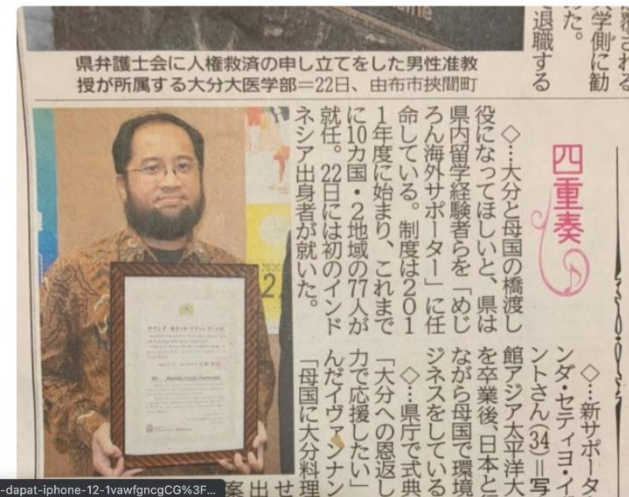 県弁護士会に人権救済の申し立てをした男性准教
授が所属する大分大医学部＝22日、由布市挾間町
学側に勧
た。
退職する
四重奏
◇…大分と母国の橋渡し
役になってほしいと、県は
県内留学経験者らを「めじ
ろん海外サポーター」に任
命している。制度は201
1年度に始まり、これまで
に10カ国・2地域の77人が
就任。22日には初のインド
ネシア出身者が就いた。
◇…新サポータ
ンダ・セティヨ・イ
ントさん(34)＝写
館アジア太平洋大
を卒業後、日本と
ながら母国で環境
ジネスをしている
◇…県庁で式典
「大分への恩返し
力で応援したい」
んだイヴァンナン
「母国に大分料理
せ
出
案
-dapat-iphone-12-1vawfgncgCG%3F...